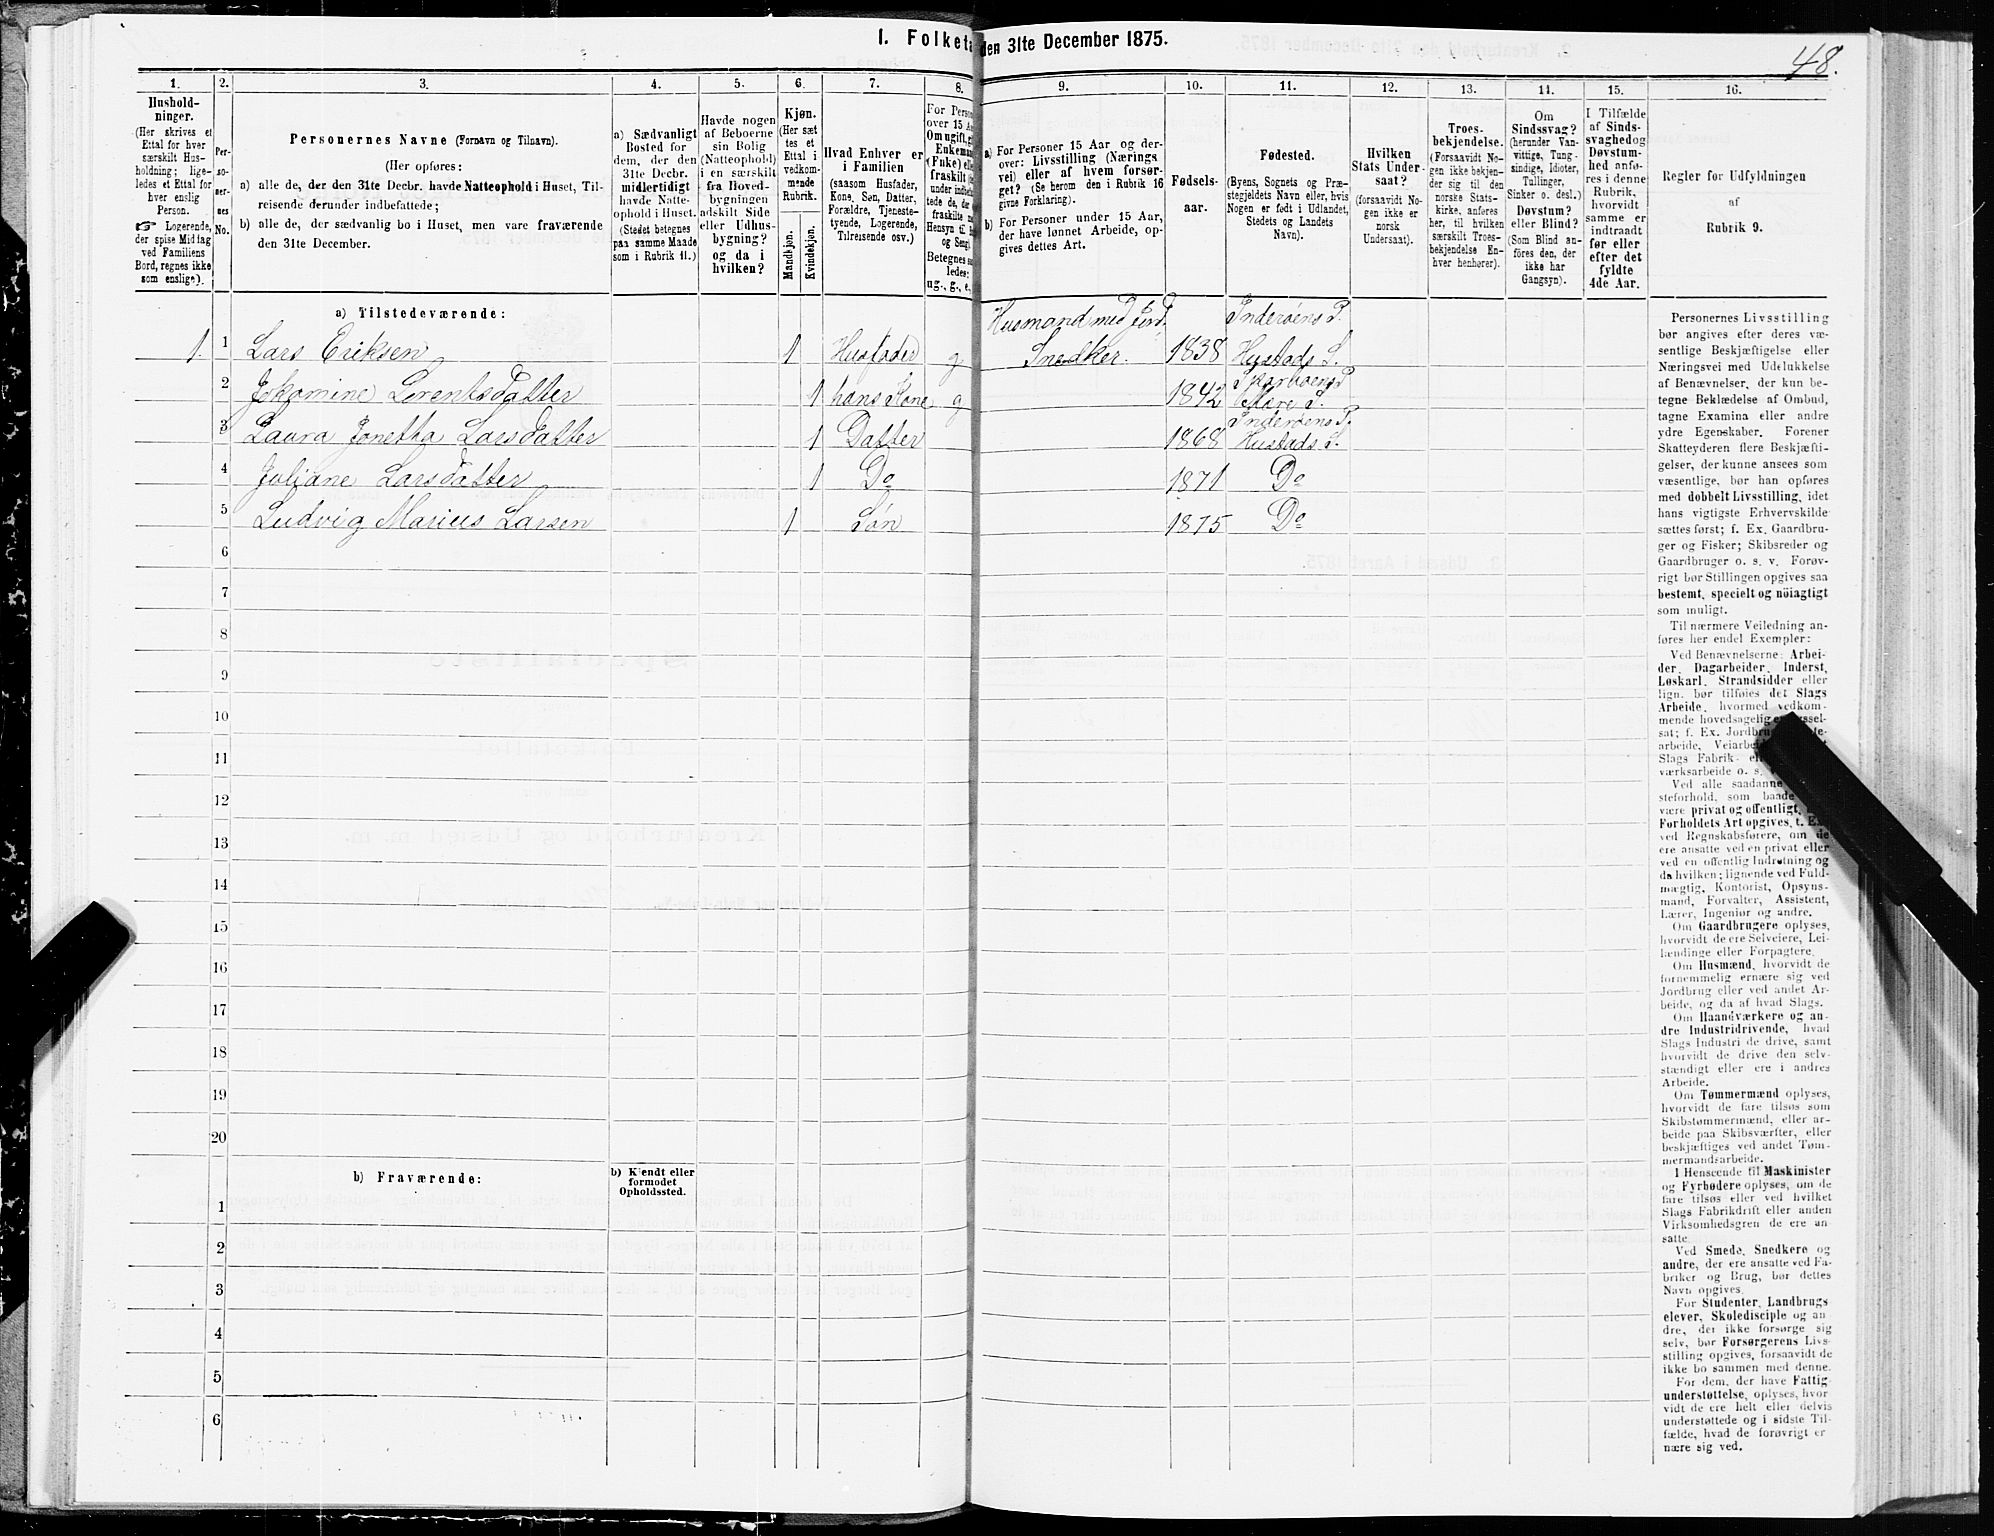 I. Folketa
den 31te December 1875.
48.
1.
2.
3.
4.
5.
6.
7.
8.
9.
10.
11.
12.
13.
14.
15.
16.
Hushold-
ninger.
(Her skrives et
Ettal for hver
særskilt Hus-
holdning; lige-
ledes et Ettal for
hver enslig
Person.
☞ Logerende,
der spise Middag
ved Familiens
Bord, regnes ikke
som enslige).
Per-
so-
ner-
nes
No.
Personernes Navne (Fornavn og Tilnavn).
(Her opføres:
a) alle de, der den 31te Decbr. havde Natteophold i Huset, Til-
reisende derunder indbefattede;
b) alle de, der sædvanlig bo i Huset, men vare fraværende
den 31te December.
a) Sædvanligt
Bosted for
dem, der den
31te Decbr.
midlertidigt
havde Natte-
ophold i Huset.
(Stedet betegnes
paa samme Maade
som i Rubrik 11.)
Havde nogen
af Beboerne
sin Bolig
(Natteophold)
i en særskilt
fra Hoved-
bygningen
adskilt Side
eller Udhus-
bygning?
og da i
hvilken?
Kjøn.
(Her sæt
tes et
Ettal i
vedkom-
mende
Rubrik.
Mandkjøn.
Kvindekjøn.
Hvad Enhver er
i Familien
(saasom Husfader,
Kone, Søn, Datter,
Forældre, Tjeneste-
tyende, Logerende,
Tilreisende osv.)
For Perso
over 15 A
Om ugift, g
Enkema
(Enke) ell
fraskilt
under indbe
tede de, der
fraskilte
Hensyn til B
og Seng
Betegnes sa
ledes:
ug., g., e.,
a) For Personer 15 Aar og der-
over: Livsstilling (Nærings
vei) eller af hvem forsør-
get? (Se herom den i Rubrik 16
givne Forklaring).
b) For Personer under 15 Aar,
der have lønnet Arbeide, op-
gives dettes Art.
Fødsels-
aar.
Fødested.
(Byens, Sognets og Præ-
stegjeldets Navn eller, hvis
Nogen er født i Udlandet,
Stedets og Landets
Navn).
Hvilken
Stats Under-
saat?
(forsaavidt No-
gen ikke er
norsk
Undersaat).
Troes-
bekjendelse.
(Forsaavidt No-
gen ikke bekjen-
der sig til den
norske Stats-
kirke, anføres
her, til hvilken
særskilt Troes-
bekjendelse En-
hver henhører).
Om
Sindssvag?
(herunder Van-
vittige, Tung-
sindige, Idioter,
Tullinger,
Sinker o. desl.).
Døvstum?
eller Blind?
(Som Blind an-
føres den, der
ikke har
Gangsyn).
I Tilfælde
af Sinds-
svaghed og
Døvstum-
hed anfø-
res i denne
Rubrik,
hvorvidt
samme er
indtraadt
før eller
efter det
fyldte
4de Aar.
Regler for Udfyldningen
af
Rubrik 9.
a) Tilstedeværende:
Husmand med Jord. Inderøens P.
1. 1 Lars Eriksen 1 Husfader g Snedker. 1838 Hustads S.
Sparboens P
2 Jokomine Lorentsdatter 1 hans Kone g 1842 Mære S.
Inderøens P.
3 Laura Jonetha Larsdatter 1 Datter 1868 Hustads S.
4 Juliane Larsdatter 1 Do 1871 Do
5 Ludvig Marius Larsen 1 Søn 1875 Do
6
7
8
9
10
11
12
13
14
15
16
17
18
19
20
b) Fraværende:
b) Kjendt eller
formodet
Opholdssted.
1
2
3
4
5
6
Personernes Livsstilling
bør angives efter deres væ-
sentlige Beskjæftigelse eller
Næringsvei med Udelukkelse
af Benævnelser, der kun be-
tegne Beklædelse af Ombud,
tagne Examina eller andre
ydre Egenskaber. Forener
Skatteyderen flere Beskjæfti-
gelser, der kunne ansees som
væsentlige, bør han opføres
med dobbelt Livsstilling, idet
hans vigtigste Erhvervskilde
sættes først; f. Ex. Gaardbru-
ger og Fisker; Skibsreder og
Gaardbruger o. s. v. Forøv-
rigt bør Stillingen opgives saa
bestemt, specielt og nöiagtigt
som muligt.
Til nærmere Veiledning an-
føres her endel Exempler:
Ved Benævnelserne: Arbei-
der, Dagarbeider, Inderst,
Løskarl, Strandsidder eller
lign. bør tilføies det Slags
Arbeide, hvormed vedkom-
mende hovedsagelig
sat; f. Ex. Jordbru
arbeide, Veiarbe
Slags Fabrik-
værksarbeide o. s.
Ved alle saadanne
steforhold, som baade
være privat og offentligt,
Forholdets Art opgives, t. Ex.
ved Regnskabsførere, om de
ere ansatte ved en privat eller
ved en offentlig Indretning og
da hvilken; lignende ved Fuld-
mægtig, Kontorist, Opsyns-
mand, Forvalter, Assistent,
Lærer, Ingeniør og andre.
Om Gaardbrugere oplyses,
hvorvidt de ere Selveiere, Lei-
lændinge eller Forpagtere.
Om Husmænd, hvorvidt de
fornemmelig ernære sig ved
Jordbrug eller ved andet Ar-
beide, og da af hvad Slags.
Om Haandværkere og an-
dre Industridrivende, hvad
Slags Industri de drive, samt
hvorvidt de drive den selv-
stændigt eller ere i andres
Arbeide.
Om Tømmermænd oplyses,
hvorvidt de fare tilsøs som
Skibstømmermænd, eller ar-
beide paa Skibsværfter, eller
beskjæftiges ved andet Tøm-
mermandsarbeide.
I Henseende til Maskinister
og Fyrbødere oplyses, om de
fare tilsøs eller ved hvilket
Slags Fabrikdrift eller anden
Virksomhedsgren de ere an-
satte.
Ved Smede, Snedkere og
andre, der ere ansatte ved Fa-
briker og Brug, bør dettes
Navn opgives.
For Studenter, Landbrugs
elever, Skoledisciple og an
dre, der ikke forsørge sig
selv, bør Forsørgerens Livs-
stilling opgives, forsaavidt de
ikke bo sammen med denne.
For dem, der have Fattig
understøttelse, oplyses, hvor
vidt de ere helt eller delvis
understøttede og i sidste Til-
fælde, hvad de forøvrigt er
nære sig ved.